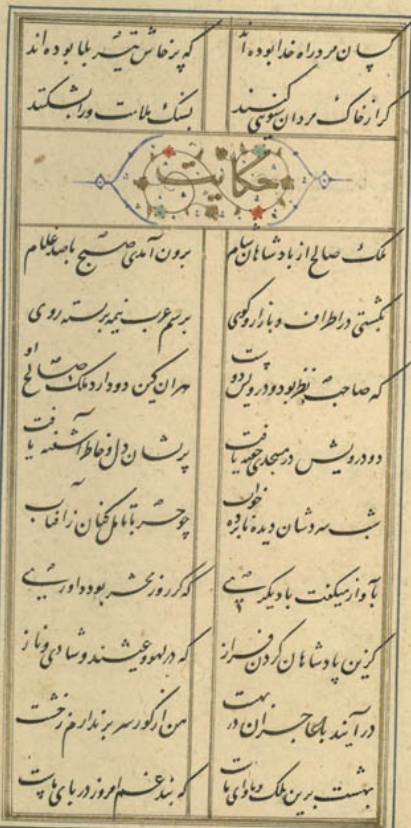 کسان مرد راه خدا بوده اند که پرخاش تیر بلا بوده اند
گر از خاک مردان سبوئی کنند بسنگ ملامت ورا بشکنند
حکایت
ملک صالح از پادشاهان شام برون آمدی صبح باصد غلام
بگشتی در اطراف و بازار و کوی برسم عرب نیمه بربسته روی
که صاحب نظر بود و درویش دوست هران کین دو دارد ملک صالح اوست
دو درویش در مسجدی خفته یافت پریشان دل و خاطر آشفته یافت
شب سردشان دیده نابرده خواب چو حربا تامل کنان زآفتاب
بآواز میگفت با دیگری که گر روز محشر بود داوری
کزین پادشاهان گردن فراز که در لهو و عیشند و شادی و ناز
درآیند با عاجزان در بهشت من از گور سر برندارم ز خشت
بهشت برین ملک و ماوای ماست که بند غم امروز در پای ماست